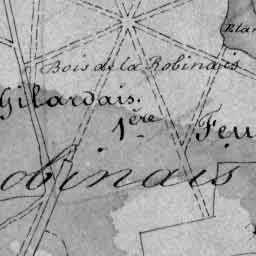 Etan
Bois de la Robinais
Gilardais.
1ère Feu
obinais